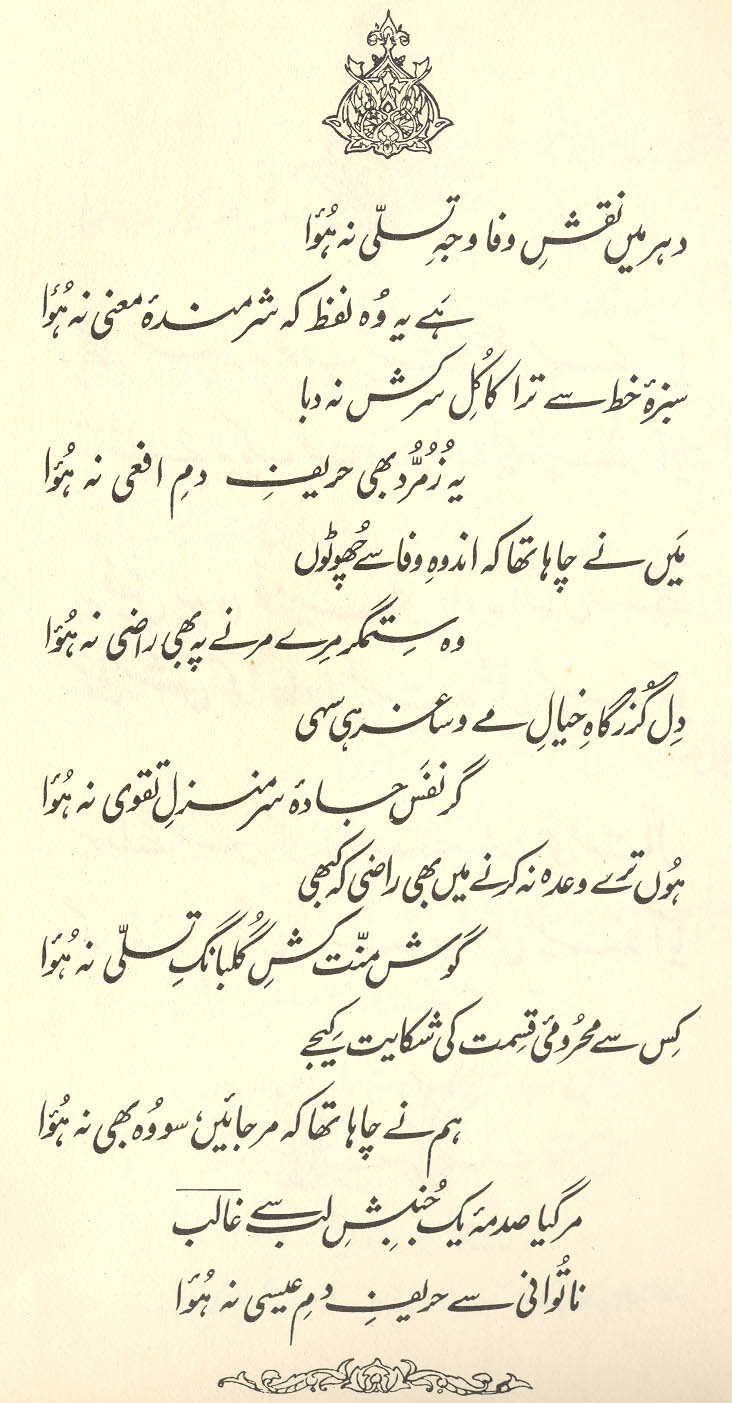 دہر میں نقشِ وفا وجہِ تسلّی نہ ہُؤا
ہَے یہ وُہ لفظ کہ شرمندۂ معنی نہ ہُؤا
سبزۂ خط سے ترا کاکُلِ سرکش نہ دبا
یہ زُمُرُّد بھی حریفِ دمِ افعی نہ ہُؤا
مَیں نے چاہا تھا کہ اندوہِ وفا سے چُھوٹوں
وہ سِتمگر مِرے مرنے پہ بھی راضی نہ ہُؤا
دِل گُزرگاہِ خیالِ مے و ساغر ہی سہی
گر نفَس جادۂ سرمنزلِ تقوی نہ ہُؤا
ہُوں ترے وعدہ نہ کرنے میں بھی راضی کہ کبھی
گوش منّت کشِ گُلبانگِ تسلّی نہ ہُؤا
کِس سے محرُومیٔ قِسمت کی شکایت کیجے
ہم نے چاہا تھا کہ مر جائیں، سو وُہ بھی نہ ہُؤا
مر گیا صدمۂ یک جُنبِشِ لب سے غالب
ناتُوانی سے حریفِ دمِ عیسی نہ ہُؤا